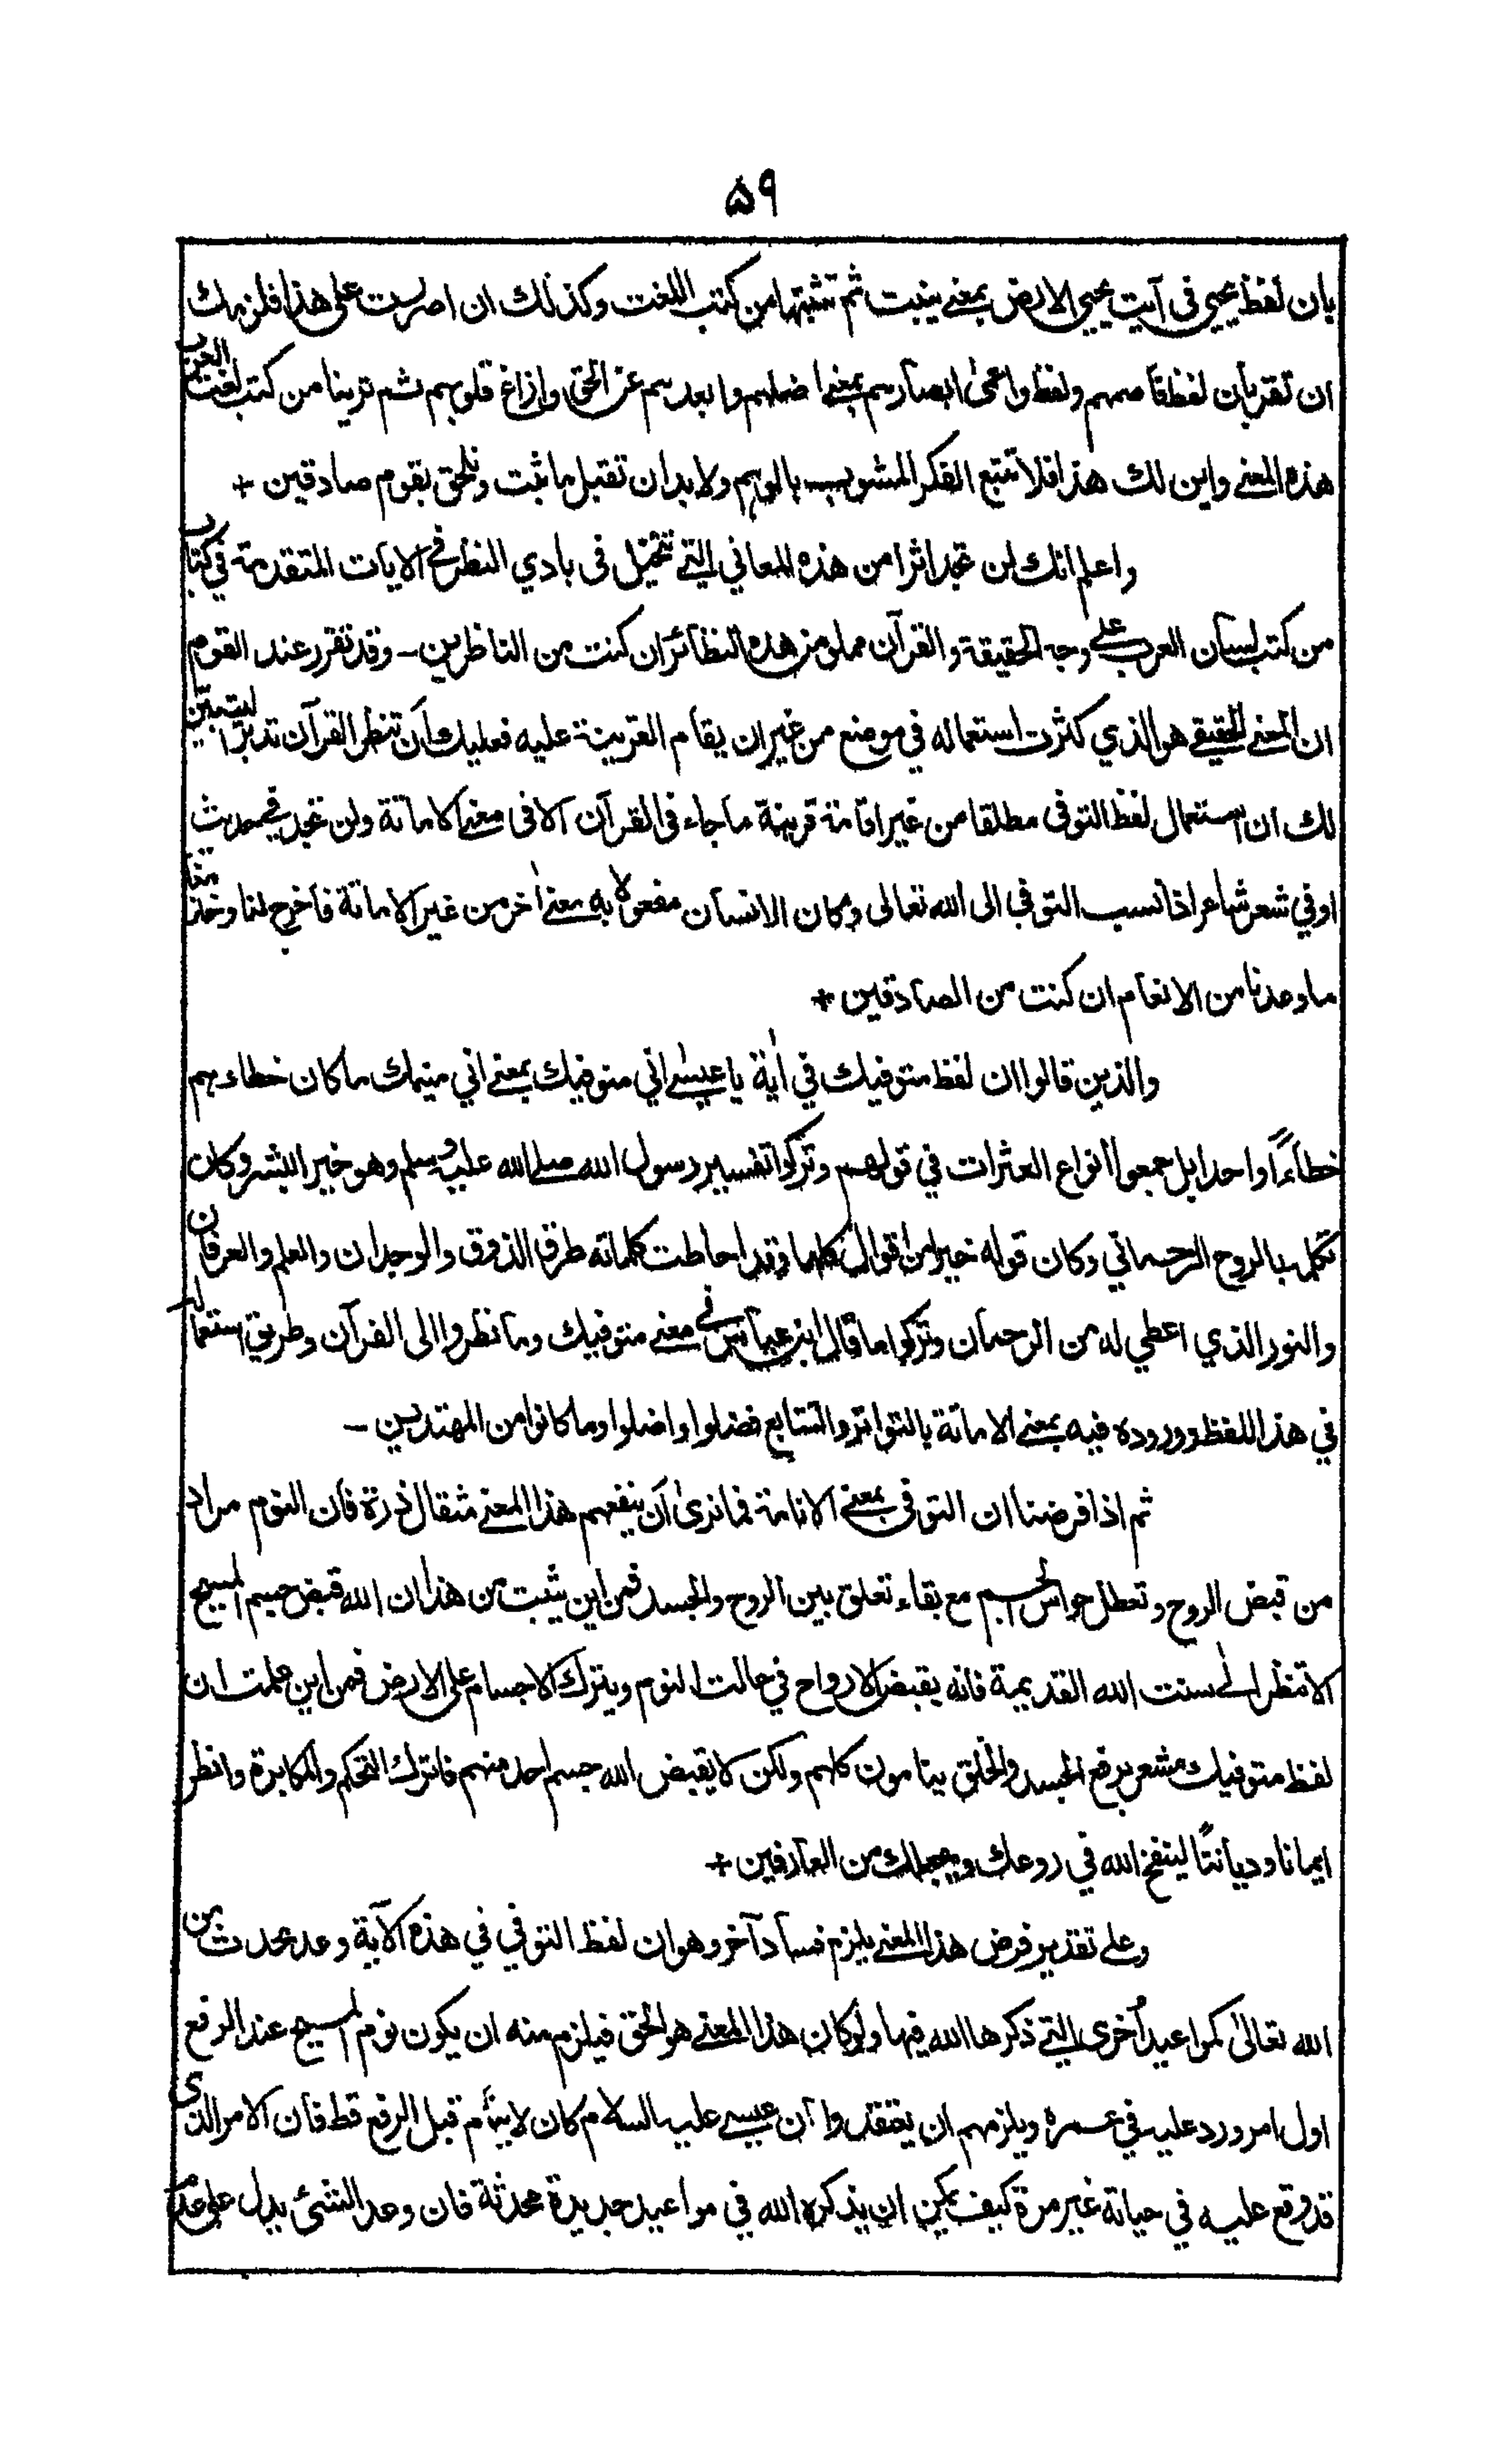 ۵۹
بان لفظ يحيى فى آيت يحيى الارض بمعنے ينبت ثم تثبتها من كتب اللغت وكذلك ان اصررت على هذا فلزمك
ان تقر بان لفظ فاصمهم ولفظ واعمىٰ ابصارهم بمعنے اضلهم وابعدهم عن الحق وازاغ قلوبهم ثم ترينا من كتب لغت العرب
هذه المعنے واين لك هذا فلا تتبع الفكر المشوب بالوهم ولا بد ان تقبل ما ثبت وتلحق بقوم صادقين +
واعلم انك لن تجد اثرا من هذه المعاني التے تتخيل فى بادي النظر فے الايات المتقدمة في كتاب
من كتب لسان العرب علے وجه الحقيقة والقرآن مملو من هذه النظائر ان كنت من الناظرين – وقد تقرر عند القوم
ان المعنے الحقيقے هو الذي كثرت استعماله في موضع من غير ان يقام القرينة عليه فعليك ان تنظر القرآن تدبرا ليتبين
لك ان استعمال لفظ التوفى مطلقا من غير اقامة قرينة ما جاء فى القرآن الا فى معنے الاماتة ولن تجد فے حديث
او في شعر شاعر اذا نسب التوفي الى الله تعالى وكان الانسان مفعولا به معنے اٰخر من غير الاماتة فاخرج لنا وخذ منا
ما وعدنا من الانعام ان كنت من الصادقين +
والذين قالوا ان لفظ متوفيك في اٰية يا عيسےٰ اني متوفيك بمعنے اني منيمك ما كان خطاءهم
خطاءً واحدا بل جمعوا انواع العثرات في قولهم وتركوا تفسير رسول الله صلے الله عليه وسلم وهو خير البشر وكان
تكلمه بالروح الرحماني وكان قوله خيرا من اقوال كلها وقد احاطت كلماته طرق الذوق والوجدان والعلم والعرفان
والنور الذي اعطي له من الرحمان وتركوا ما قال ابن عباس فے معنے متوفيك وما نظروا الى القرآن وطريق استعماله
في هذا اللفظ ووروده فيه بمعنے الاماتة بالتواتر والتتابع فضلوا واضلوا وما كانوا من المهتدين –
ثم اذا فرضنا ان التوفى بمعنے الانامة فما نرىٰ ان ينفعهم هذا المعنے مثقال ذرة فان النوم مراد
من قبض الروح وتعطل حواس الجسم مع بقاء تعلق بين الروح والجسد فمن اين يثبت من هذا ان الله قبض جسم المسيح
الا تنظر الےٰ سنت الله القديمة فانه يقبض الارواح في حالت النوم ويترك الاجسام على الارض فمن اين علمت ان
لفظ متوفيك مشعر برفع الجسد والخلق ينامون كلهم ولكن لا يقبض الله جسم احد منهم فاترك التحكم والمكابرة وانظر
ايمانا وديانتًا لينفخ الله في روعك ويجعلك من العارفين +
وعلے تقدير فرض هذا المعنے يلزم فساد آخر وهو ان لفظ التوفي في هذه الآية وعد محدث من
الله تعالىٰ كمواعيد اُخرى التے ذكرها الله فيها ولو كان هذا المعنے هو الحق فيلزم منه ان يكون نوم المسيح عند الرفع
اول امر ورد عليه في عمره ويلزمهم ان يعتقدوا ان عيسے عليه السلام كان لا ينام قبل الرفع قط فان الامر الذى
قد وقع عليه في حياته غير مرة كيف يمكن ان يذكره الله في مواعيد جديدة محدثة فان وعد الشئ يدل علے عدم